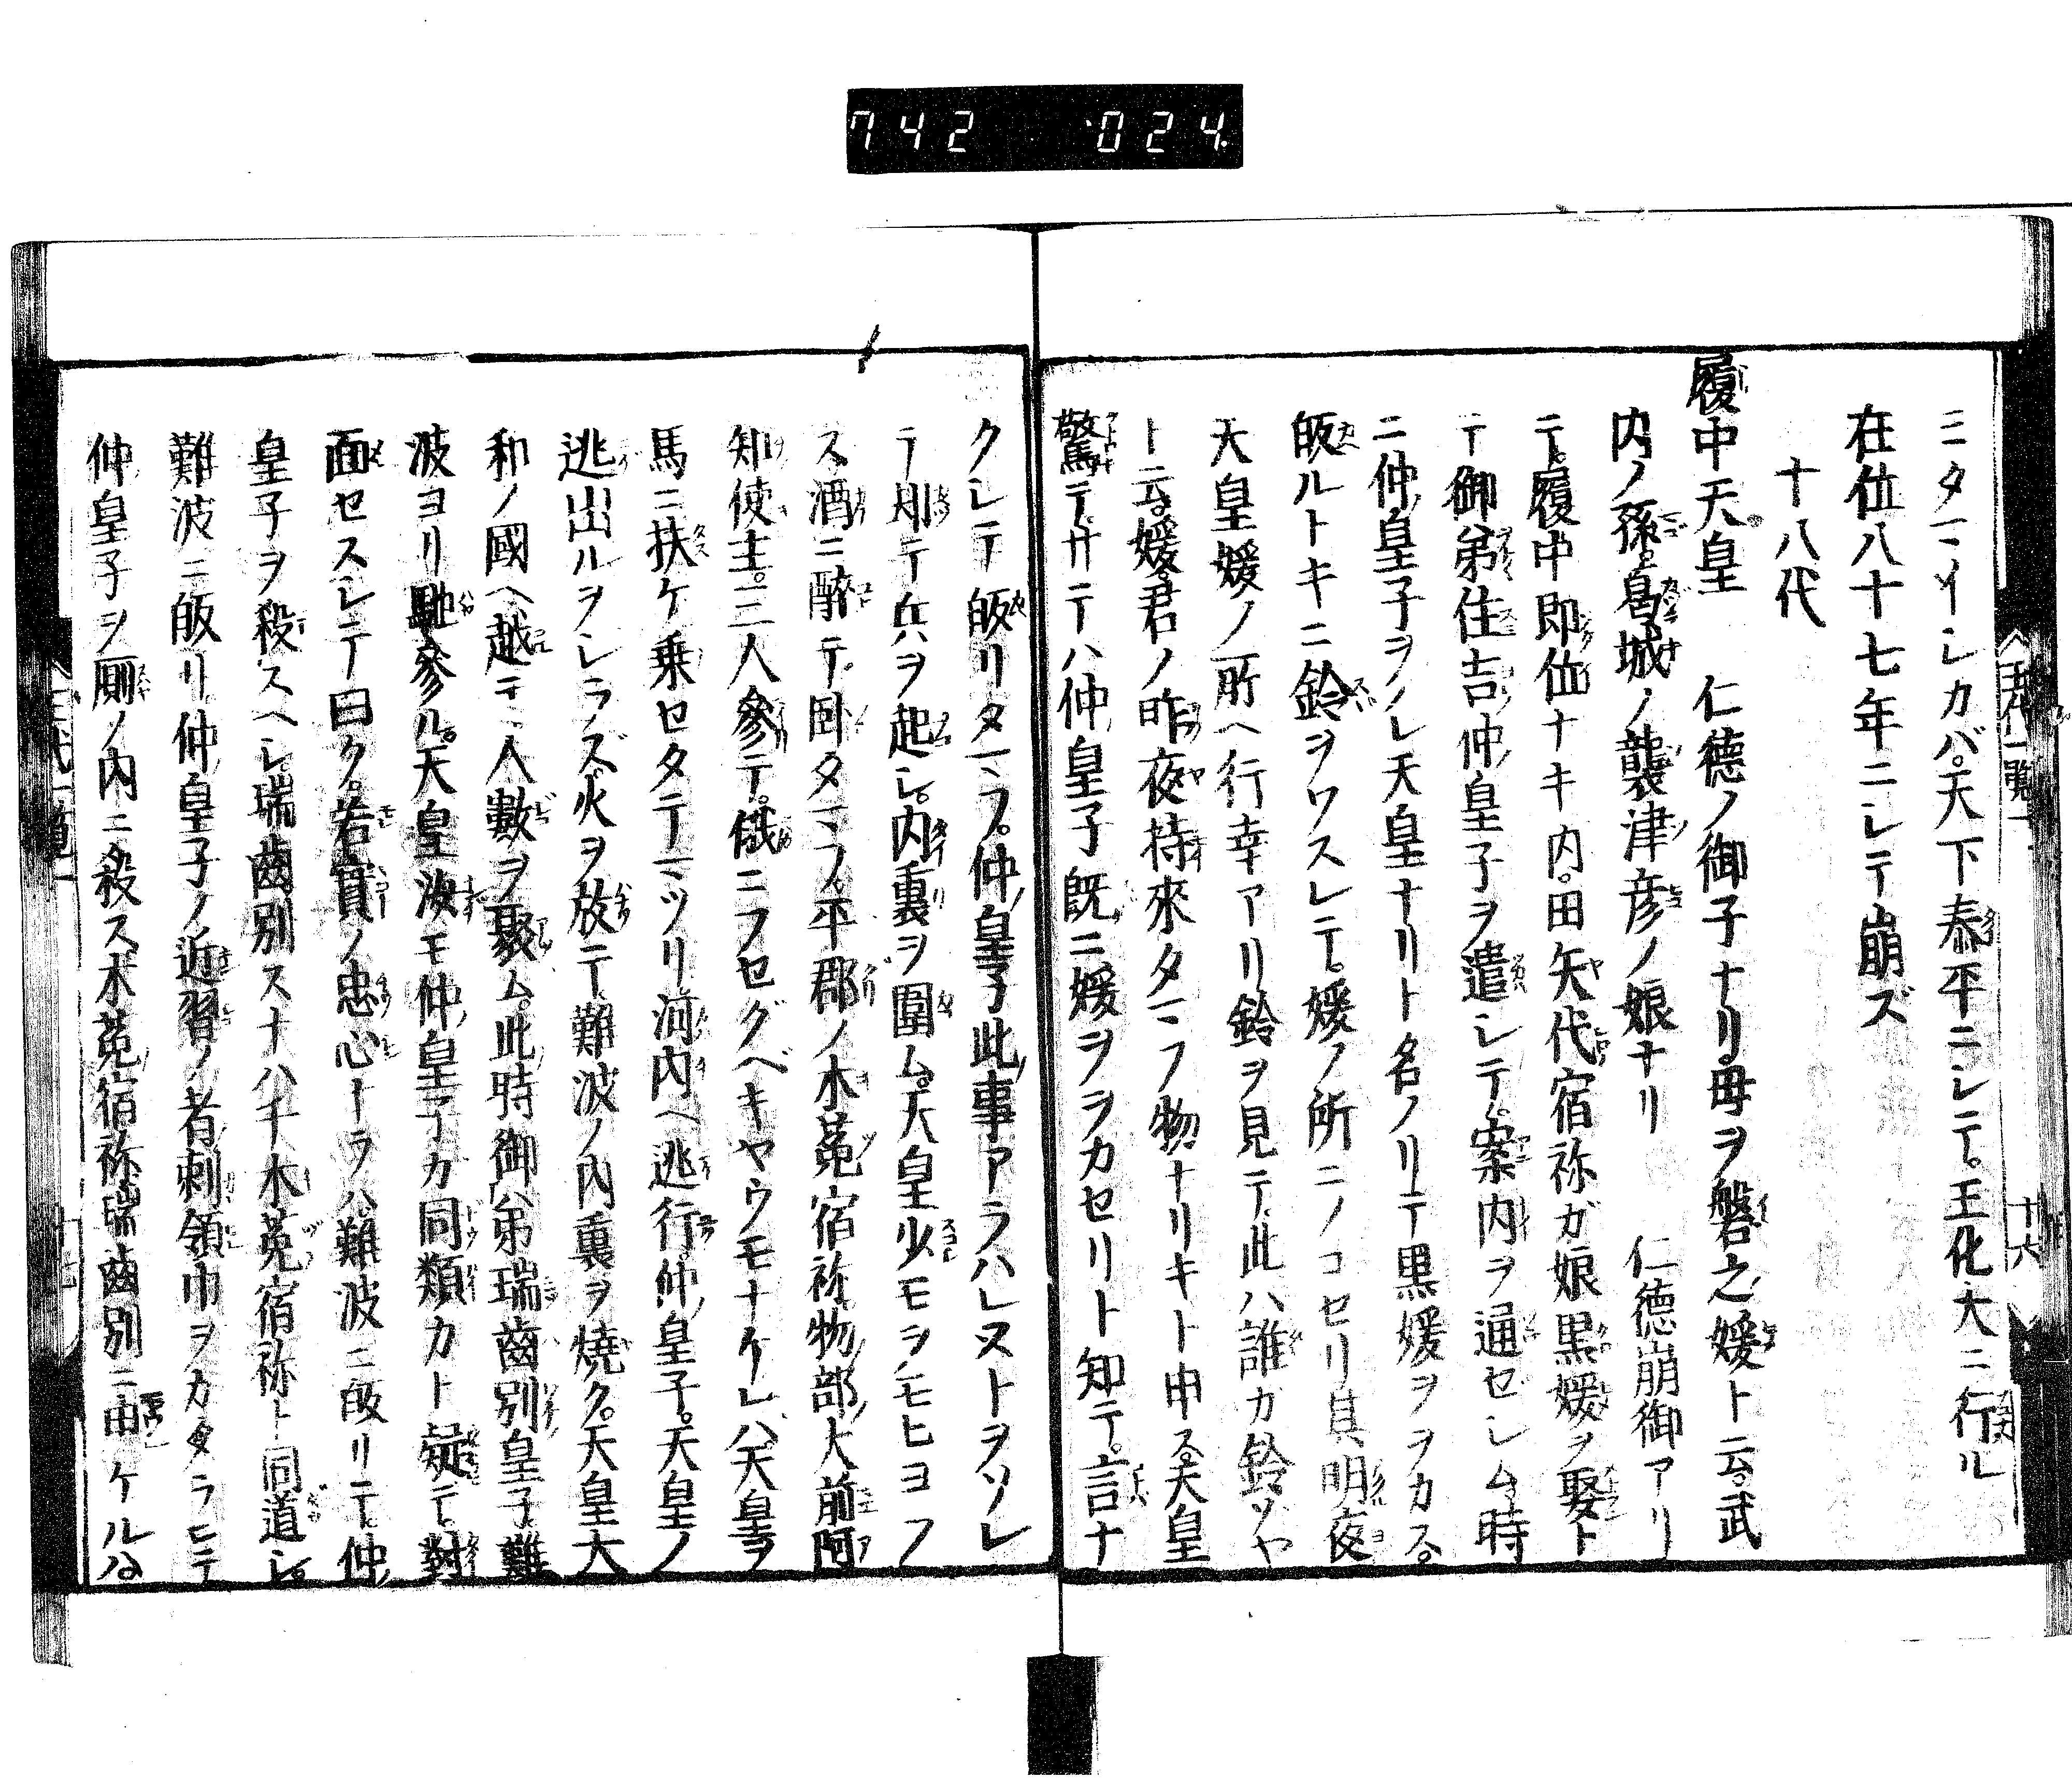 742 024
ニタマイシカバ。天下泰平ニシテ。王化大ニ行ル
在位八十七年ニシテ崩ズ
十八代
履中天皇 仁徳ノ御子ナリ母ヲ磐之媛ト云。武
内ノ孫。葛城ノ襲津彦ノ娘ナリ 仁徳崩御アリ
テ。履中即位ナキ内。田矢代宿祢ガ娘黒媛ヲ娶ト
テ御弟住吉仲皇子ヲ遣シテ。案内ヲ通ゼシム時
ニ仲皇子ヲノレ天皇ナリト名ノリテ黒媛ヲヲカス。
皈ルトキニ鈴ヲワスレテ。媛ノ所ニノコセリ其明夜
天皇媛ノ所ヘ行幸アリ鈴ヲ見テ。此ハ誰カ鈴ソヤ
ト云。媛。君ノ昨夜持來タマフ物ナリキト申ス。天皇
驚テ。サテハ仲皇子既ニ媛ヲヲカセリト知テ。言ナ
クシテ皈リタマフ。仲皇子此事アラハレヌトヲソレ
テ則テ兵ヲ起シ。内裏ヲ圍ム。天皇少モヲモヒヨラ
ス酒ニ醉テ臥タマフ。平郡ノ木菟宿祢。物部大前。阿
知使主。三人參テ。俄ニフセグベキヤウモナケレバ。天皇ヲ
馬ニ扶ケ乗セタテマツリ河内ヘ逃行。仲皇子。天皇ノ
逃出ルヲシラズ火ヲ放テ難波ノ内裏ヲ燒ク。天皇大
和ノ國ヘ越テ人數ヲ聚ム。此時御弟瑞齒別皇子難
波ヨリ馳參ル。天皇汝モ仲皇子カ同類カト疑テ。對
面セスシテ曰ク。若實ノ忠心アラハ難波ニ皈リテ。仲
皇子ヲ殺スヘシ。瑞齒別スナハチ木菟宿祢ト同道シ。
難波ニ皈リ。仲皇子ノ近習ノ者刺領巾ヲカタラヒテ
仲皇子ヲ厠ノ内ニ殺ス木菟宿祢瑞齒別ニ申ケルハ
王代一覧一 十六